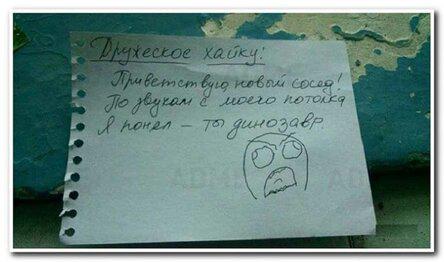 Дружеское хайку:
Приветствую новый сосед!
По звукам с моего потолка
Я понял – ты динозавр